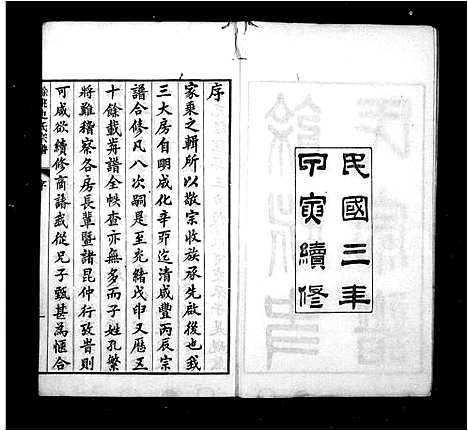 民國三年
甲寅續修
序
家乘之輯所以敬宗收族承先啟後也我
三大房自明成化辛卯迄清咸豐丙辰宗
譜合修凡八次嗣是至光緒戊申又歷五
十餘載舊譜全帙查亦無多而子姓孔繁
將難稽察各房長輩暨諸昆仲行攷昔則
可咸欲續修商諸戚從兄子甄甚為愜合